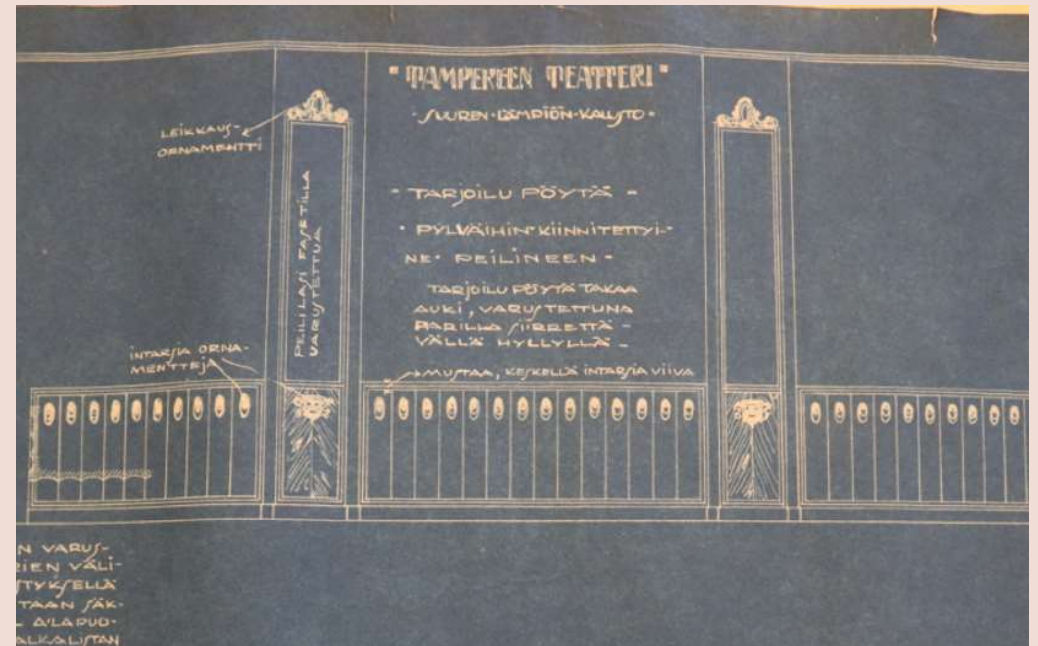 "TAMPEREEN TEATTERI"
·SUUREN·LÄMPIÖN·KALUSTO·
LEIKKAUS-
ORNAMENTTI
PEILILASI FASETILLA
VARUSTETTUA
- TARJOILU PÖYTÄ -
· PYLVÄIHIN·KIINNITETTYI-
NE· PEILINEEN -
TARJOILU PÖYTÄ TAKAA
AUKI, VARUSTETTUNA
PARILLA SIIRRETTÄ-
VÄLLÄ HYLLYLLÄ -
INTARSIA ORNA-
MENTTEJA
MUSTAA, KESKELLÄ INTARSIA VIIVA
N VARUS-
RIEN VÄLI-
STYKSELLÄ
TAAN SÄK-
ALAPUO-
ALKALISTAN